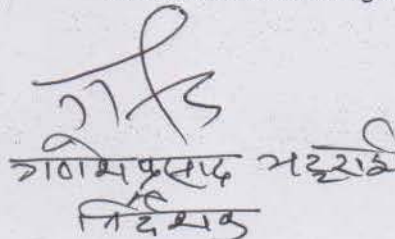 गणेश प्रसाद भट्टराई
निर्देशक